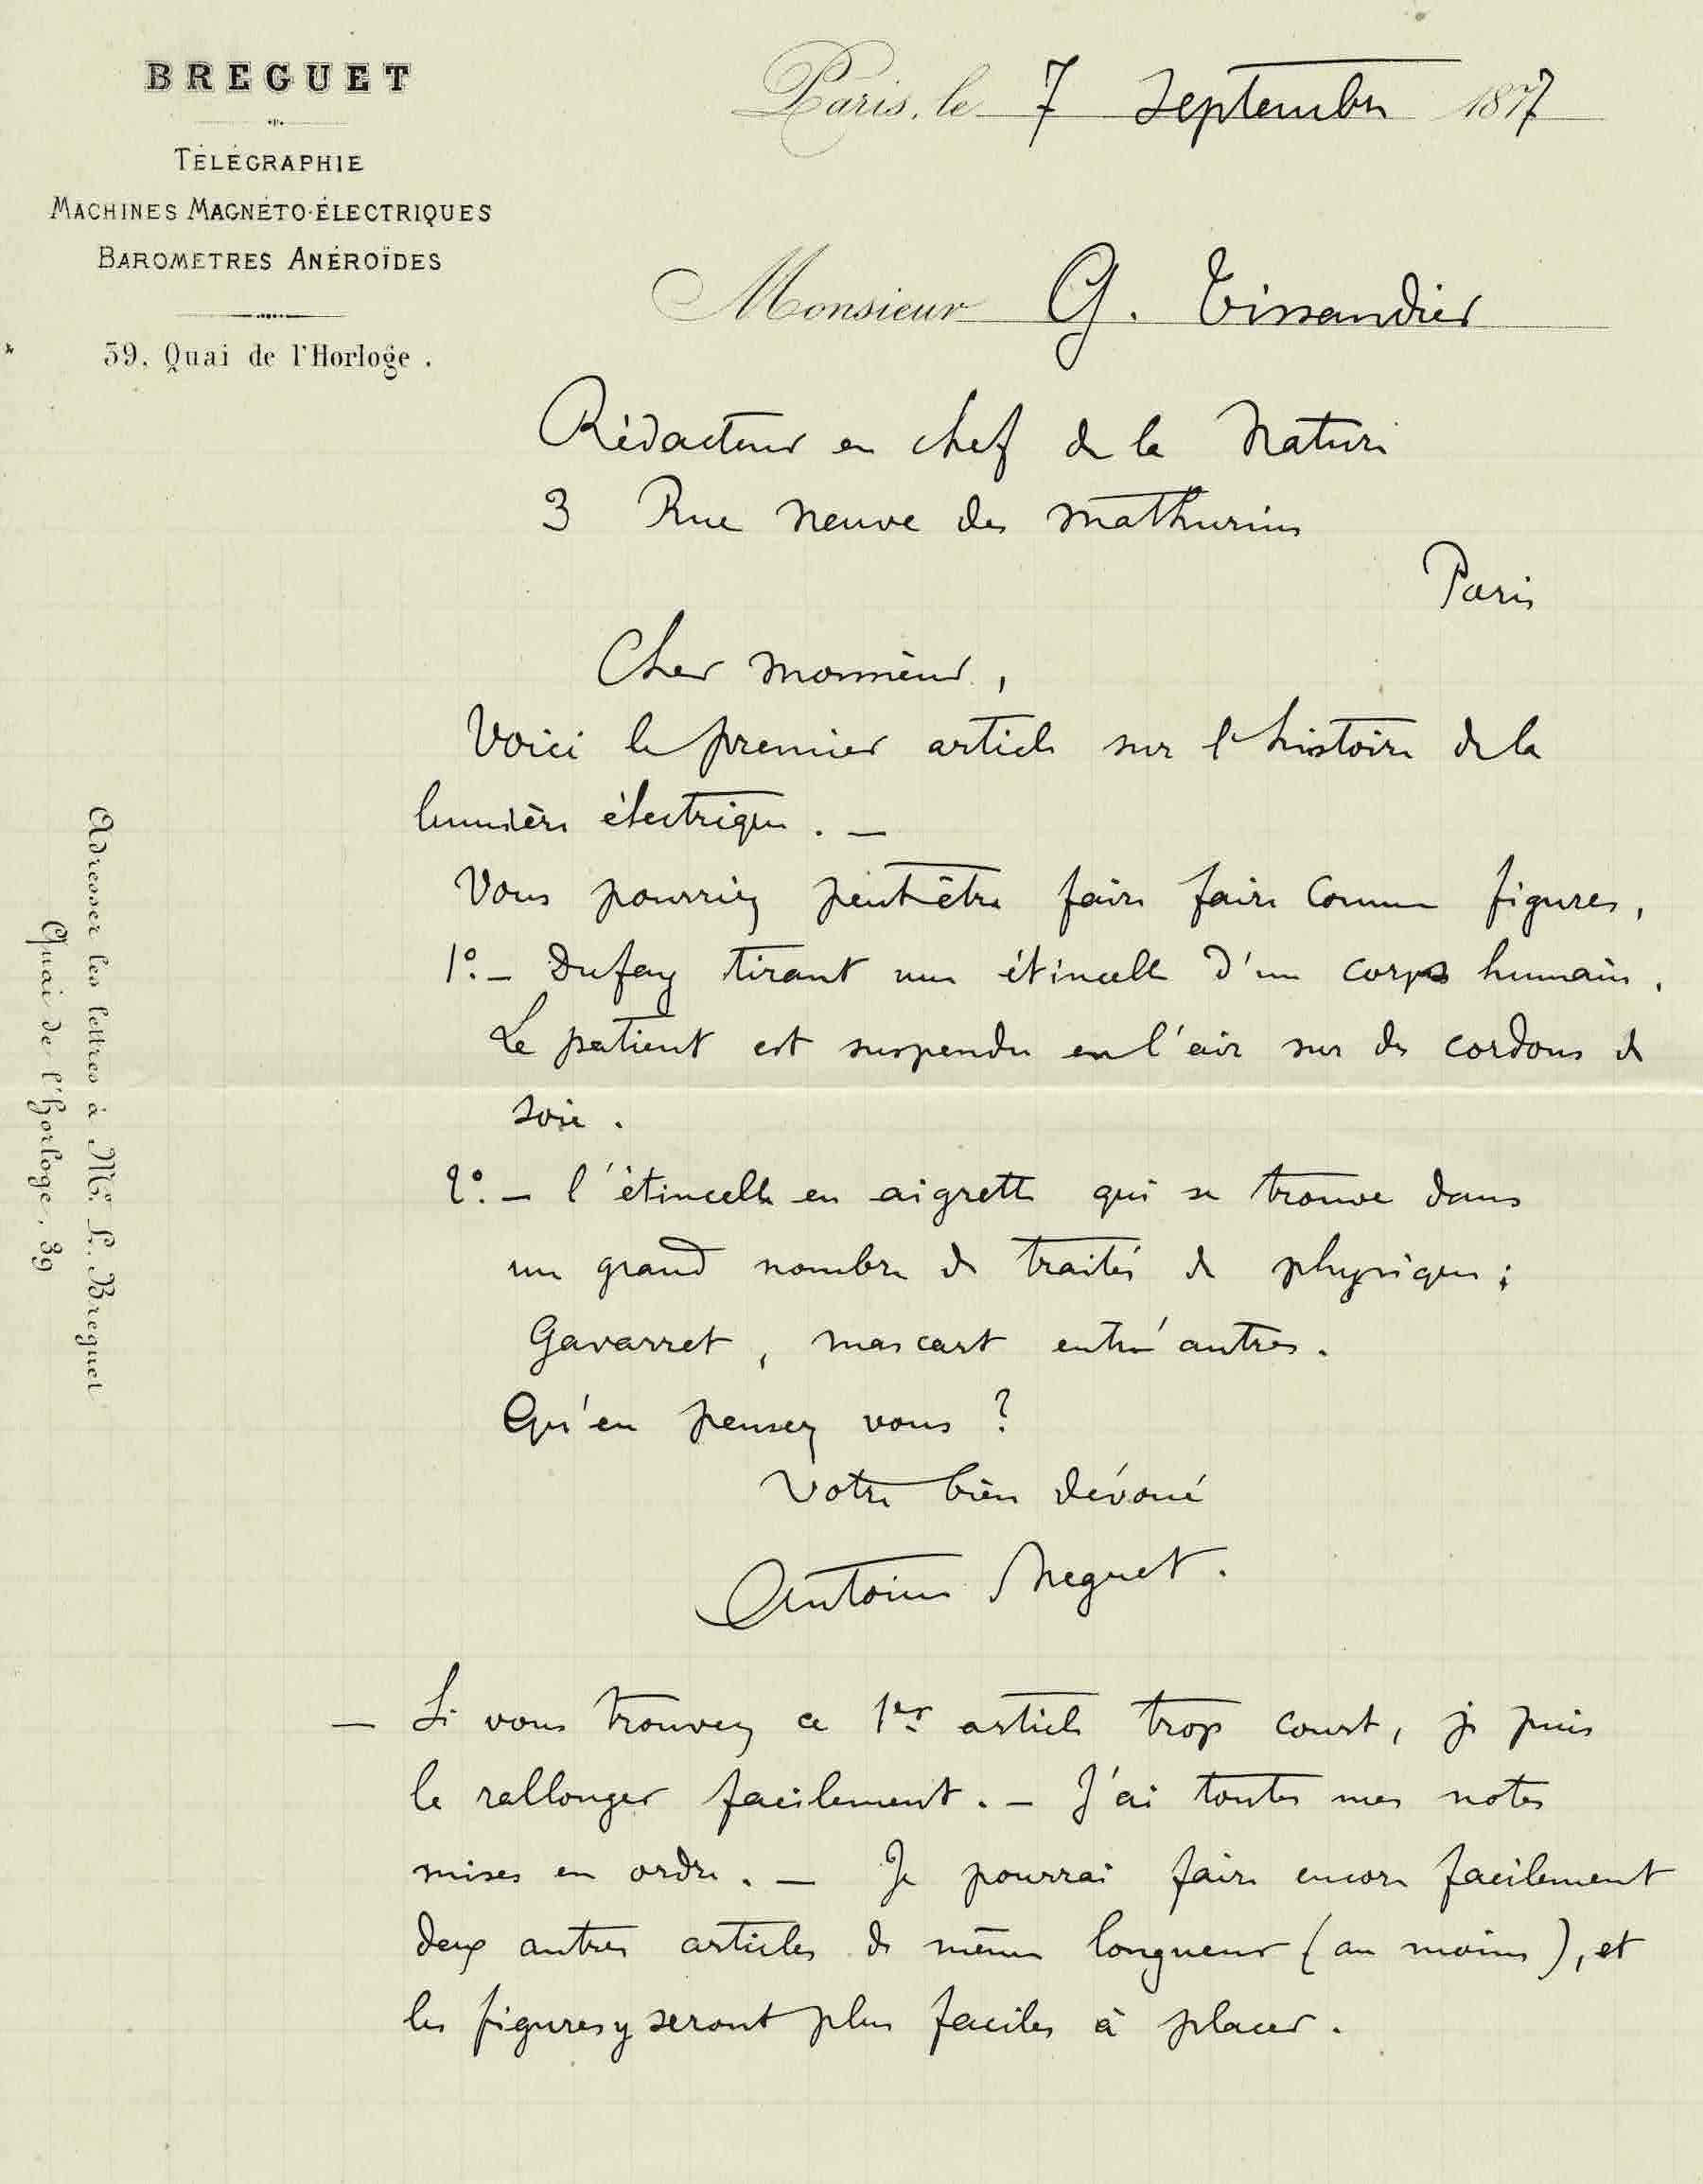 BREGUET
TÉLÉGRAPHIE
MACHINES MAGNÉTO-ÉLECTRIQUES
BAROMÈTRES ANÉROÏDES
39, Quai de l'Horloge.
Paris, le 7 Septembre 1877
Monsieur G. Tissandier
Rédacteur en chef de la Nature
3 Rue Neuve des Mathurins
Paris
Cher Monsieur,
Voici le premier article sur l'histoire de la
lumière électrique. —
Vous pourriez peut-être faire faire comme figures,
1°. — Dufay tirant une étincelle d'un corps humain.
Le patient est suspendu en l'air sur des cordons de
soie.
2°. — l'étincelle en aigrette qui se trouve dans
un grand nombre de traités de physique;
Gavarret, Mascart entr'autres.
Qu'en pensez vous?
Votre bien dévoué
Antoine Breguet.
— Si vous trouvez ce 1er article trop court, je puis
le rallonger facilement. — J'ai toutes mes notes
mises en ordre. — Je pourrai faire encore facilement
deux autres articles de même longueur (au moins), et
les figures y seront plus faciles à placer.
Adresser les lettres à Mr. L. Breguet
Quai de l'Horloge, 39